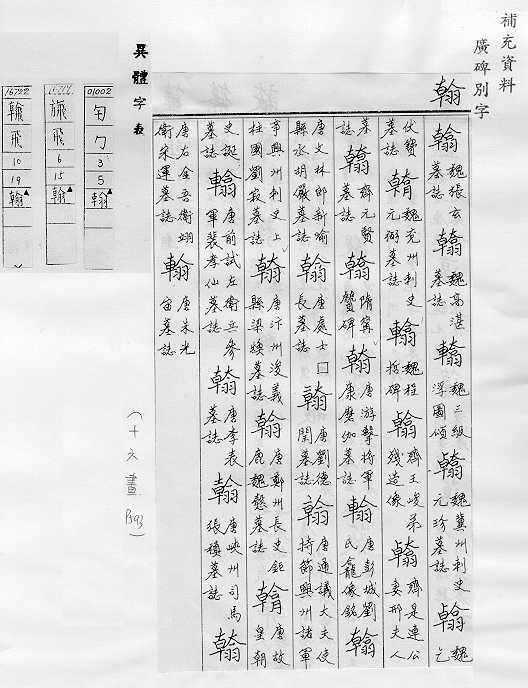 補充資料
廣碑別字
翰
翰 魏張玄墓誌 翰 魏高湛墓誌 翰 魏三級浮圖頌 翰 魏冀州刺史元珍墓誌 翰 魏乞
伏寶墓誌 翰 魏兗州刺史元弼墓誌 翰 魏程哲碑 翰 齊王峻弟殘造像 翰 齊是連公妻邢夫人
墓誌 翰 齊元賢墓誌 翰 隋甯贙碑 翰 唐游擊將軍康磨伽墓誌 翰 唐彭城劉氏龕像銘 翰
唐文林郎新喻縣丞胡儼墓誌 翰 唐處士□長墓誌 翰 唐劉德閏墓誌 翰 唐通議大夫使持節興州諸軍
事興州刺史上柱國劉寂墓誌 翰 唐汴州浚義縣梁煥墓誌 翰 唐鄭州長史鉅鹿魏愨墓誌 翰 唐故皇朝
史誕墓誌 翰 唐前試左衛兵參軍裴孝仙墓誌 翰 唐李表墓誌 翰 唐峽州司馬張積墓誌 翰
唐右金吾衛翊衛宋運墓誌 翰 唐朱光宙墓誌
異體字表
01002
勹
3
5
翰
飛
6
15
翰
16722
飛
10
19
翰
（十六畫 P393）